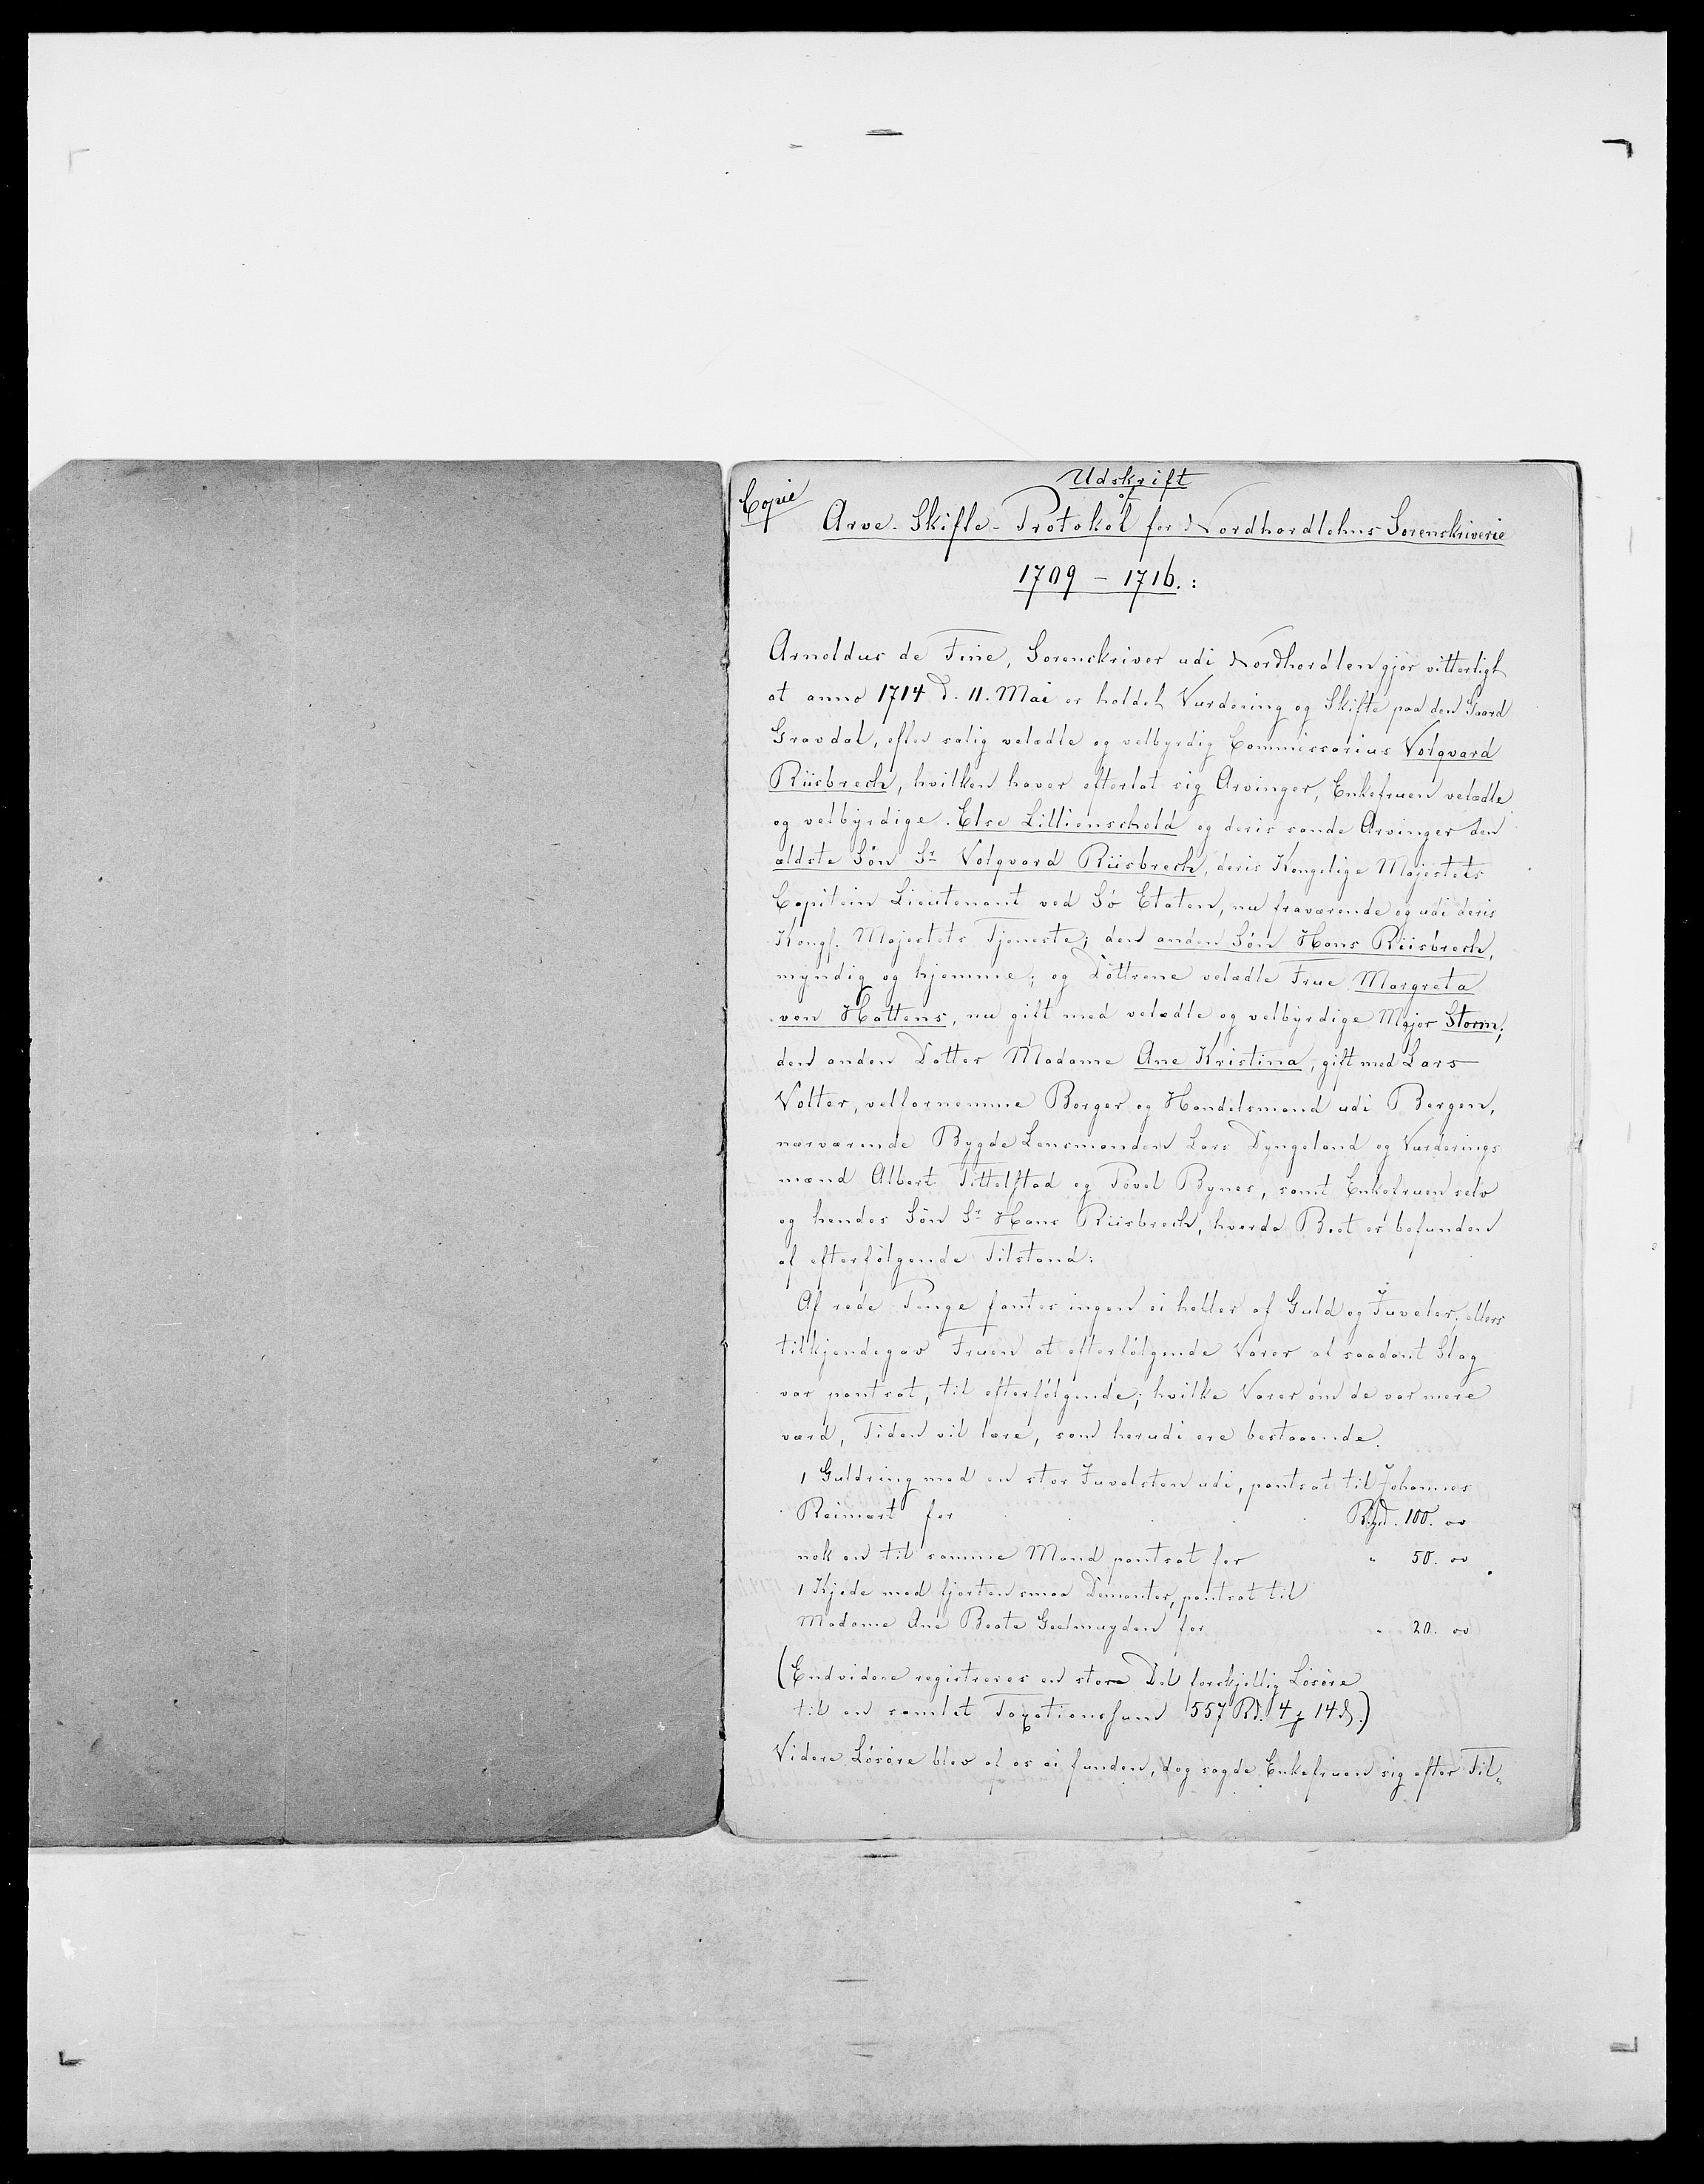 Copie
Udskrift
af
Arve-Skifte-Protokol for Nordhordlehns Sorenskriverie
1709 - 1716.:
Arnoldus de Fine, Sorenskriver udi Nordhordlen gjør vitterligt
at anno 1714 d. 11. Mai er holdet Vurdering og Skifte paa den Gaard
Gravdal, efter salig velædle og velbyrdig Commissarius Volqvard
Riisbrech, hvilken haver efterlat sig Arvinger, Enkefruen velædle
og velbyrdige Else Lillienschold og deris sande Arvinger den
ældste Søn Sr Volqvard Riisbrech, deris Kongelige Majestets
Capitein Lieutenant ved Sø Etaten, nu fraværende og udi deris
Kongl. Majestets Tjeneste; den anden Søn Hans Riisbrech,
myndig og hjemme; og Døttrene velædle Frue Margreta
von Hattens, nu gift med velædle og velbyrdige Major Storm;
den anden Datter Madame Ane Kristina, gift med Lars
Volter, velfornemme Borger og Handelsmand udi Bergen,
nærværende Bygde Lensmanden Lars Dyngeland og Vurderings
mænd Albert Tittelstad og Povel Bynes, samt Enkefruen selv
og hendes Søn Sr Hans Riisbrech, hvorda Boet er befunden
af efterfølgende Tilstand:
Af rede Penge fantes ingen ei heller af Guld og Juveler, ellers
tilkjendegav Fruen at efterfølgende Varer al saadant Slag
var pantsat, til efterfølgende; hvilke Varer om de var mere
værd, Tiden vil lære, som herudi ere bestaaende.
1 Guldring med en stor Juvelsten udi, pantsat til Johannes
Reimert for Rigd. 100. oo
nok en til samme Mand pantsat for " 50. oo
1 Kjede med fjorten smaa Demanter, pantsat til
Madame Ane Beate Geelmuyden for " 20. oo
(Endvidere registreres en store Del forskjellig Løsøre
til en samlet Taxationssum 557 Rd. 4 ƺ 14 ß.)
Videre Løsøre blev af os ei funden, dog sagde Enkefruen sig efter Til„